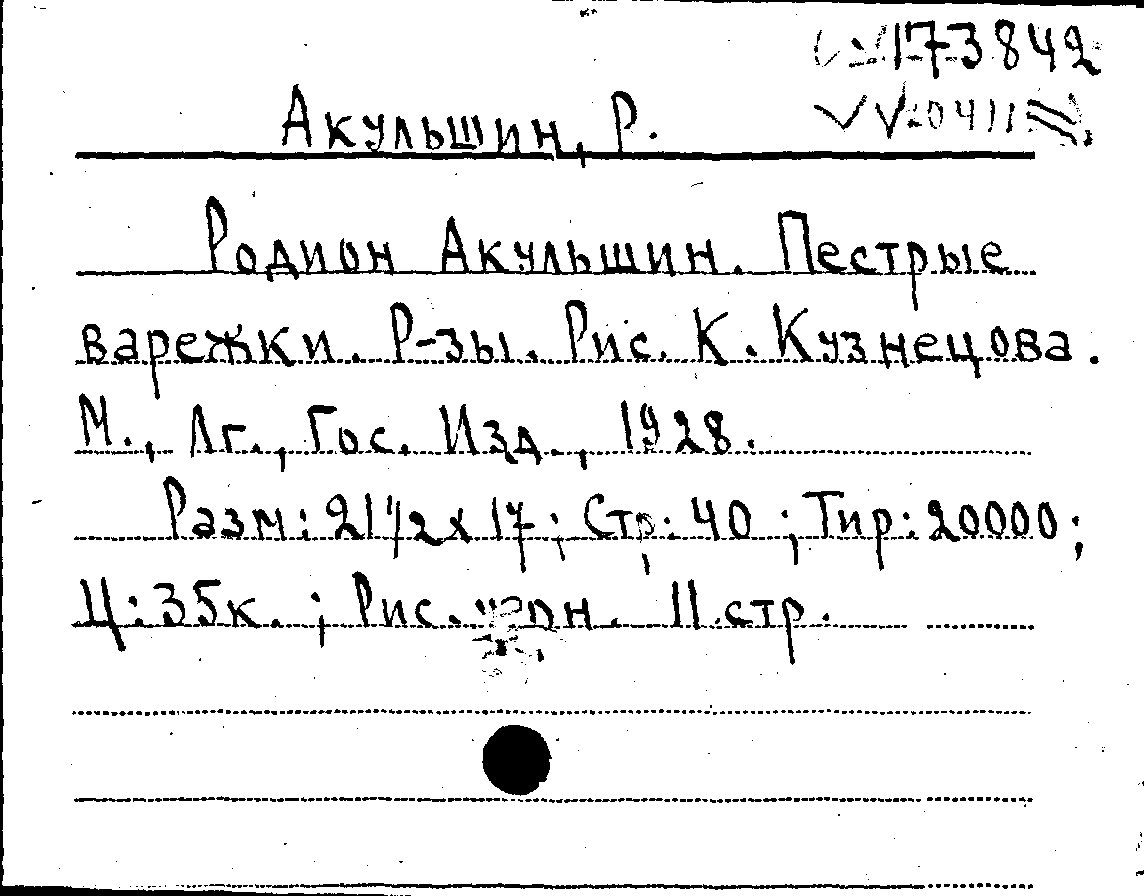 173842
Акульшин, Р.
Родион Акульшин. Пестрые
варежки. Р-зы. Рис. К. Кузнецова.
М., Лг., Гос. Изд., 1928.
Разм: 21 1/2 х 17; Стр: 40 ; Тир: 20000;
Ц: 35к. ; Рис. 11.стр.